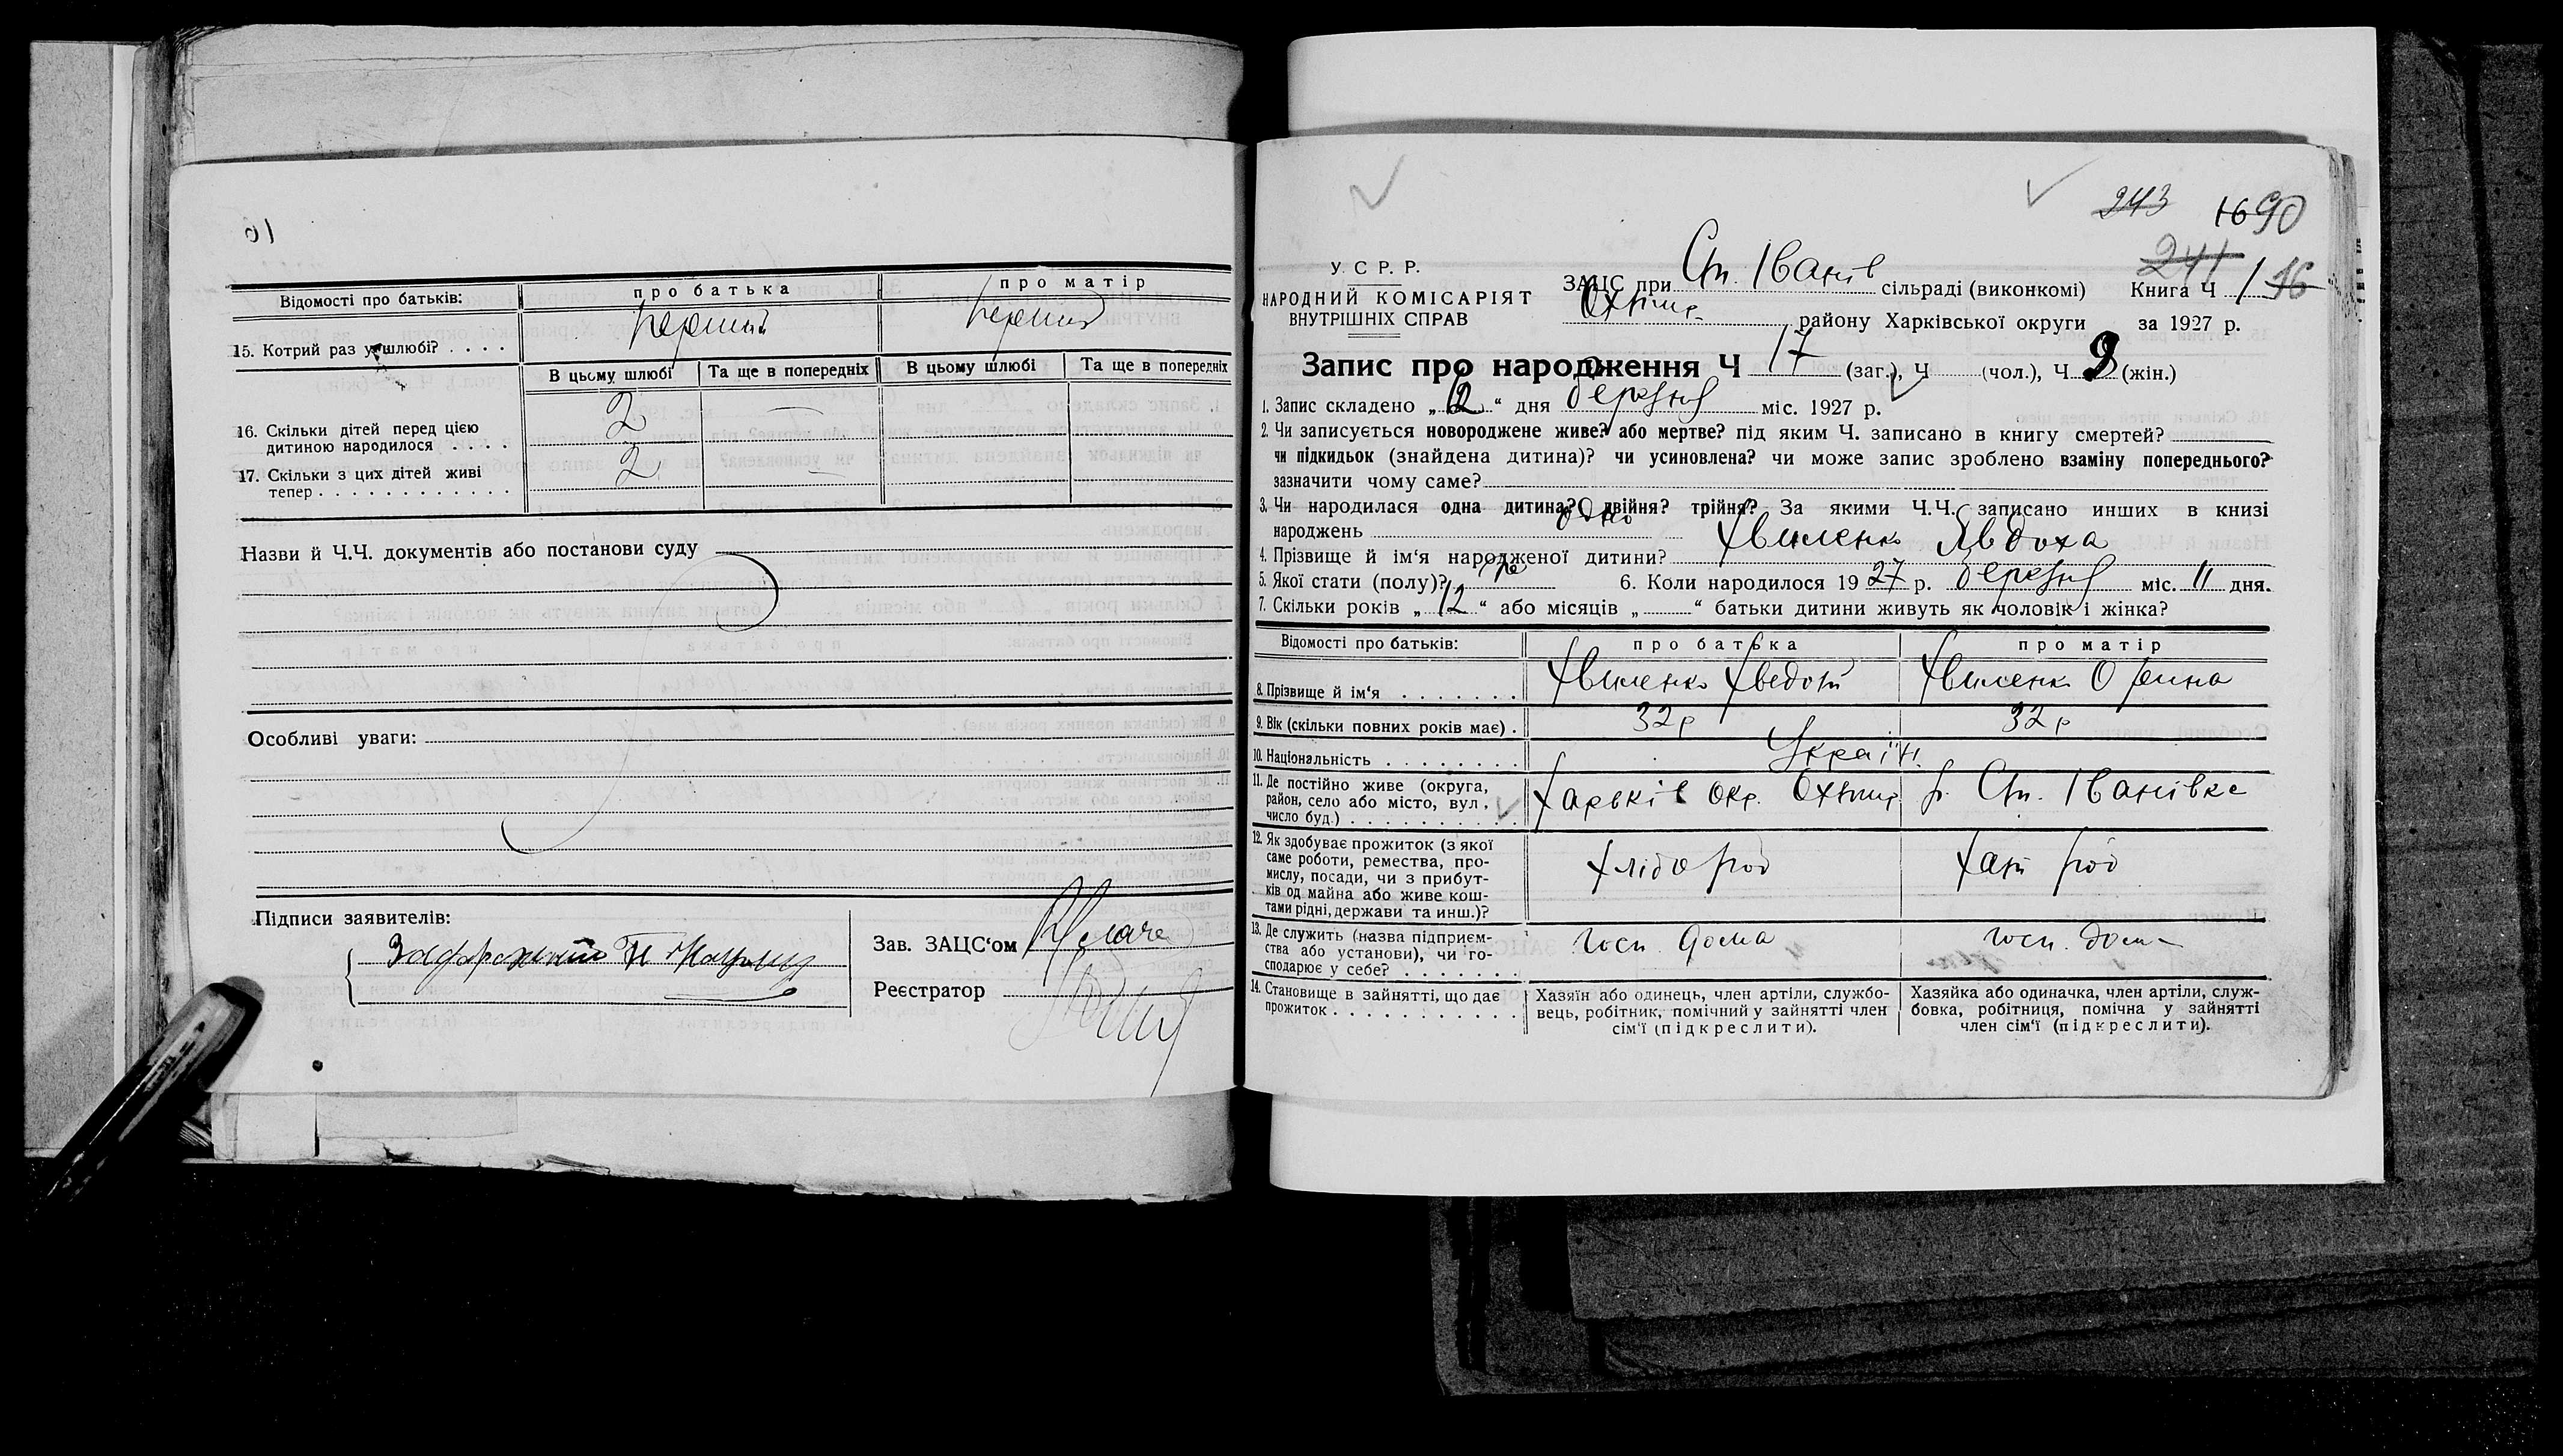 16
Відомості про батьків: про батька про матір
15. Котрий раз у шлюбі? . . . . перший перший
В цьому шлюбі Та ще в попередніх В цьому шлюбі Та ще в попередніх
16. Скільки дітей перед цією
дитиною народилося . . . . 2 —
17. Скільки з цих дітей живі
тепер . . . . . . . . . . . . 2 —
Назви й Ч.Ч. документів або постанови суду
Особливі уваги:
Підписи заявителів:
Зав. ЗАЦС'ом
Реєстратор
243 1690
241
У. С Р. Р.
НАРОДНИЙ КОМІСАРІЯТ
ВНУТРІШНІХ СПРАВ
ЗАЦС при Сп. Іванів сільраді (виконкомі) Книга Ч 1 16
Охтир. району Харківської округи за 1927 р.
Запис про народження Ч 17 (заг.), Ч (чол.), Ч 9 (жін.)
1. Запис складено „12“ дня березня міс. 1927 р.
2. Чи записується новороджене живе? або мертве? під яким Ч. записано в книгу смертей?
чи підкидьок (знайдена дитина)? чи усиновлена? чи може запис зроблено взаміну попереднього?
зазначити чому саме?
3. Чи народилася одна дитина? двійня? трійня? За якими Ч.Ч. записано инших в книзі
народжень одно
4. Прізвище й ім'я народженої дитини? Хвиленко Явдоха
5. Якої стати (полу)? 6. Коли народилось 1927 р. березня міс. 11 дня.
7. Скільки років „12“ або місяців „ “ батьки дитини живуть як чоловік і жінка?
Відомості про батьків: про батька про матір
8. Прізвище й ім'я . . . . . . . Хвиленко Хведот Хвиленко Орина
9. Вік (скільки повних років має) . 32 р 32 р
10. Національність . . . . . . . . Україн.
11. Де постійно живе (округа,
район, село або місто, вул.,
число буд.) . . . . . . . . . . Харьків окр. Охтир. р. Сп. Іванівка
12. Як здобуває прожиток (з якої
саме роботи, ремества, про-
мислу, посади, чи з прибут-
ків од майна або живе кош-
тами рідні, держави та инш.)? Хлібороб Хат роб
13. Де служить (назва підприєм-
ства або установи), чи го-
сподарює у себе? . . . . . . . Госп. дома Госп. дома
14. Становище в зайнятті, що дає
прожиток . . . . . . . . . . .
Хазяїн або одинець, член артіли, службо-
вець, робітник, помічний у зайнятті член
сім'ї (підкреслити).
Хазяйка або одиначка, член артіли, служ-
бовка, робітниця, помічна у зайнятті
член сім'ї (підкреслити).